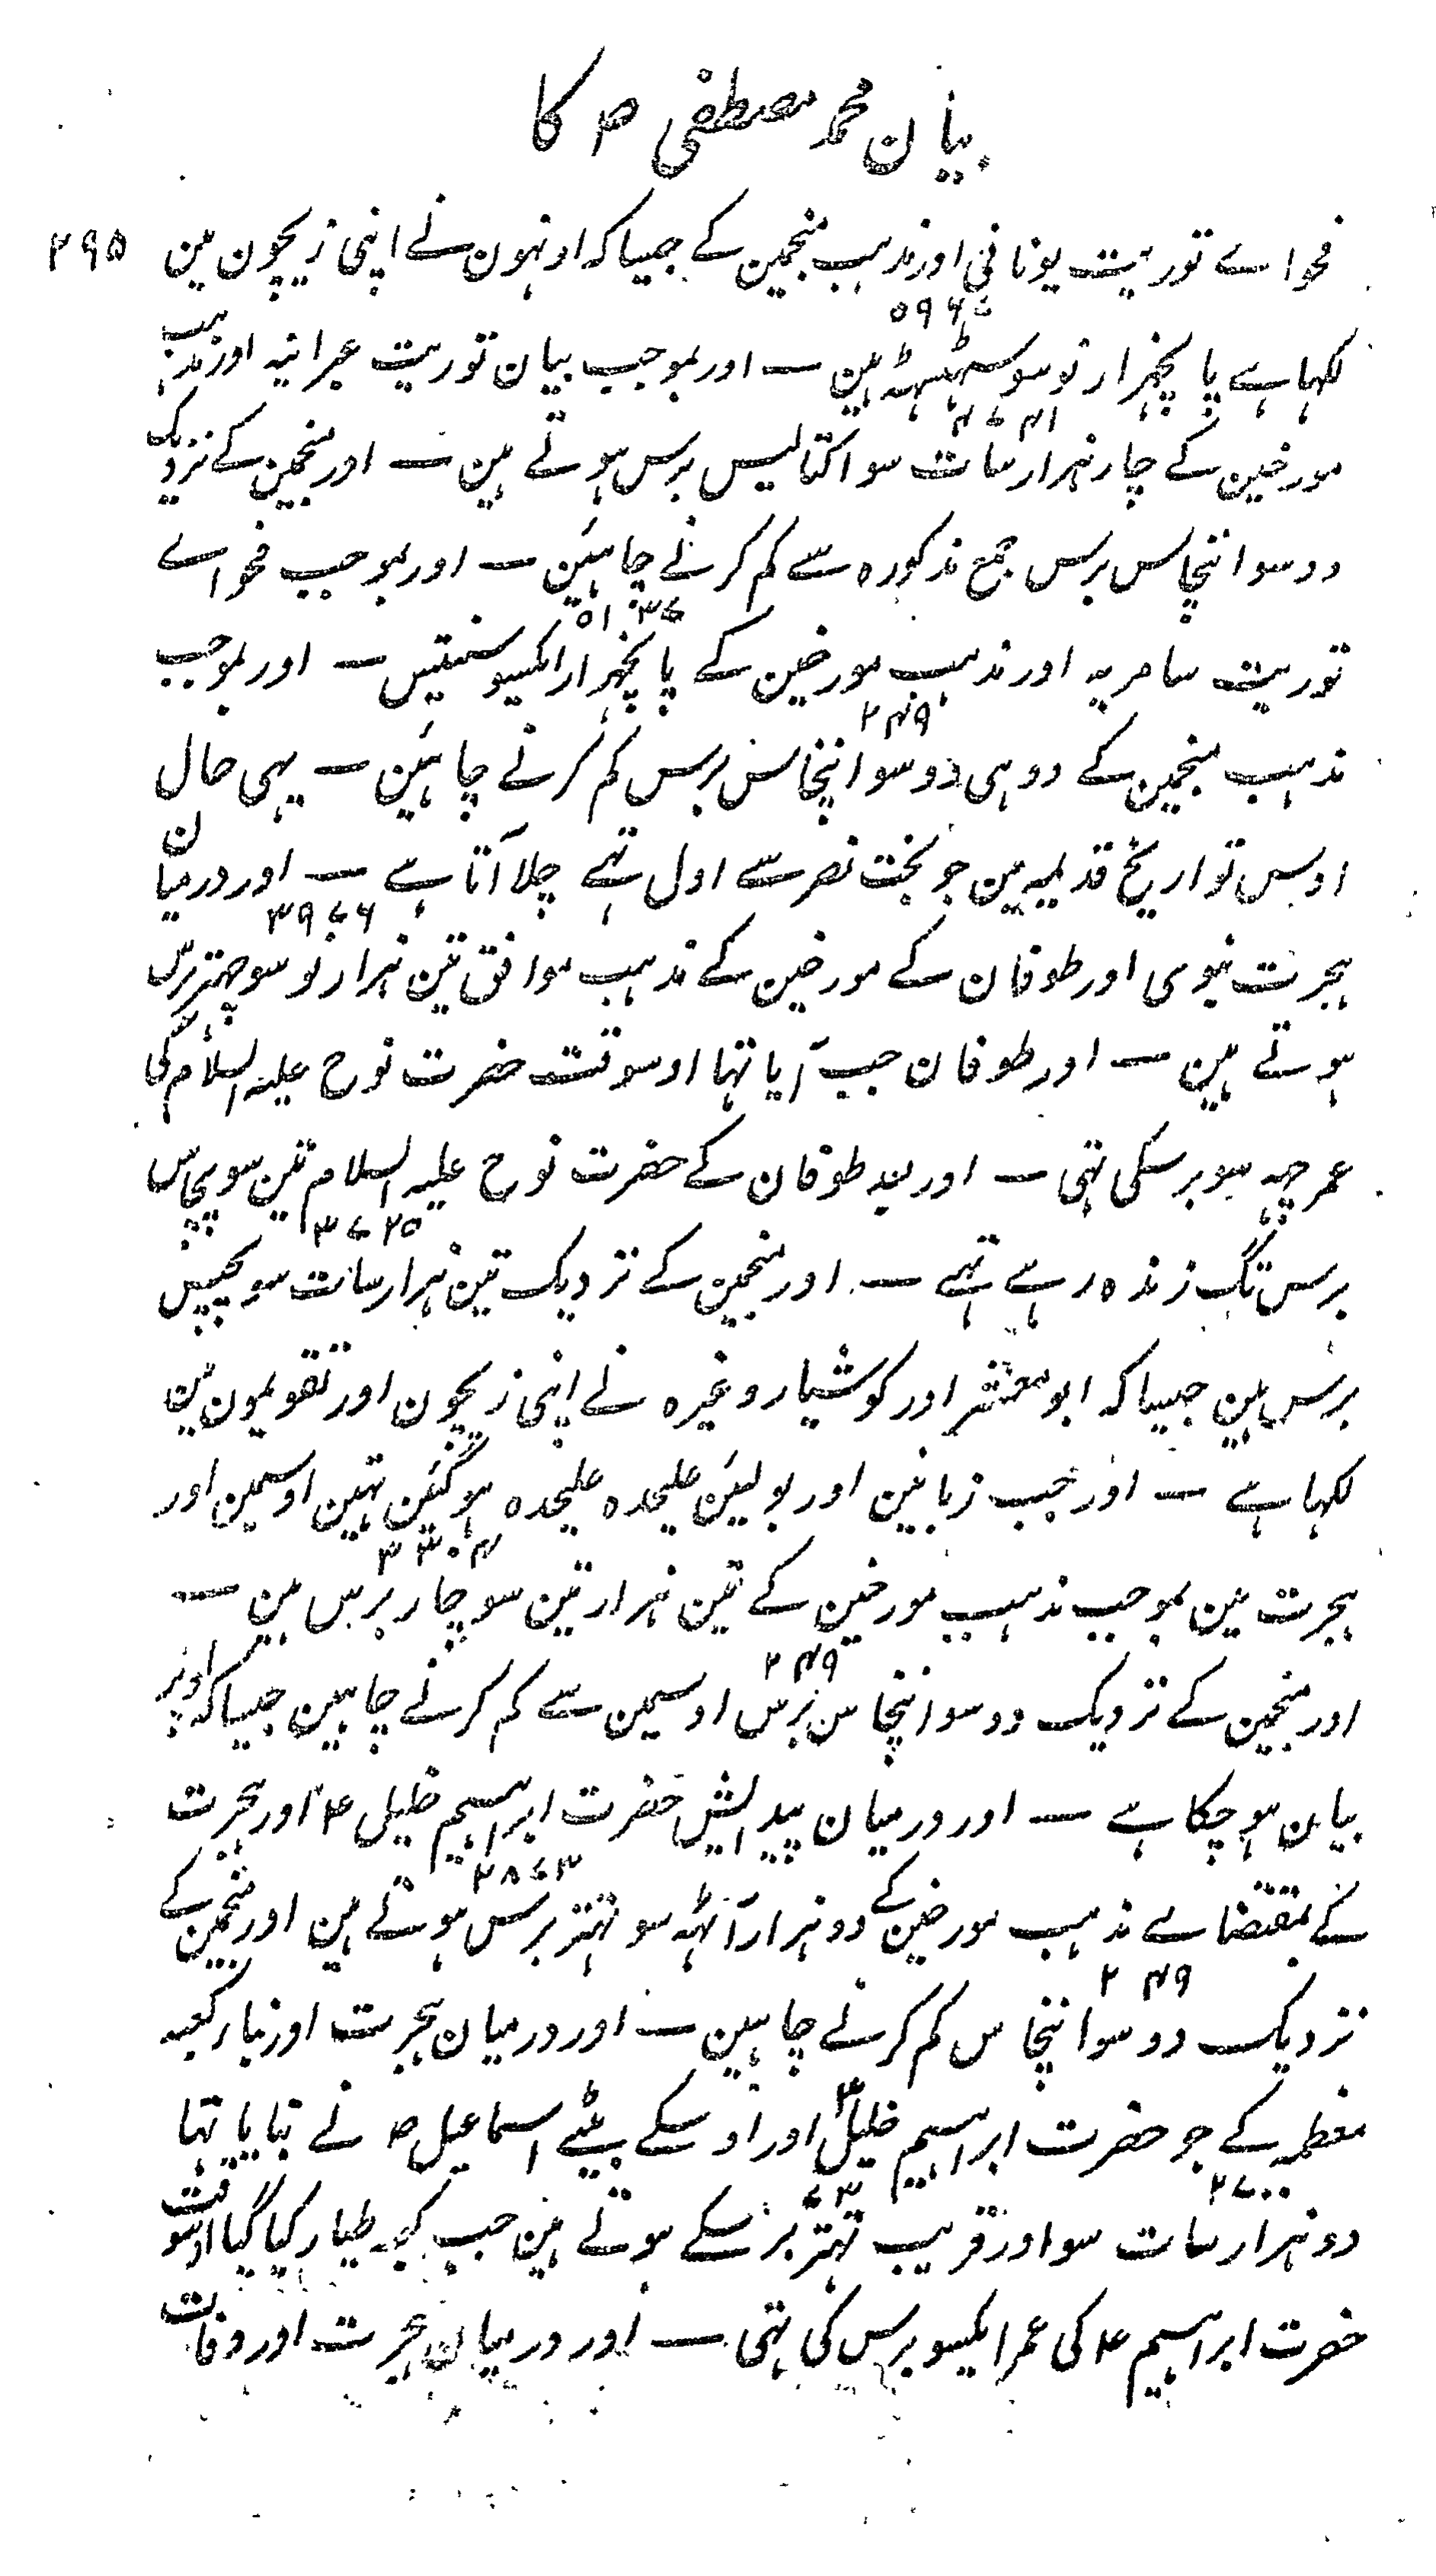 بیان محمد مصطفی ص کا
۲۹۵
فحواے توریت یونانی اور مذہب منجمین کے جیسا کہ اونہون نے اپنی زیچون مین
۵۹۶۷
لکہا ہے پانچہزار نو سو سٹہسٹہہ ہین ۔ اور بموجب بیان توریت عبرانیہ اور مذہب
۴۷۴۱
مورخین کے چار ہزار سات سو اکتالیس برس ہوتے ہین ۔ اور منجمین کے نزدیک
دو سو اننچاس برس جمع مذکورہ سے کم کرنے چاہئین ۔ اور بموجب فحواے
۵۱۳۷
توریت سامریہ اور مذہب مورخین کے پانچہزار ایکسیو سینتیس ۔ اور بموجب
۲۴۹
مذہب منجمین کے دو ہی دو سو اننچاس برس کم کرنے چاہئین ۔ یہی حال
اوبس تواریخ قدیمہ مین جو بخت نصر سے اول تہے چلا آتا ہے ۔ اور درمیان
۳۹۷۶
ہجرت نبوی اور طوفان کے مورخین کے مذہب موافق تین ہزار نو سو چہتر برس
ہوتے ہین ۔ اور طوفان جب آیا تہا اوسوقت حضرت نوح علیہ السلام کی
عمر چہہ سو برسکی تہی ۔ اور بعد طوفان کے حضرت نوح علیہ السلام تین سو پچاس
۳۷۲۵
برس تک زندہ رہے تہے ۔ اور منجمین کے نزدیک تین ہزار سات سو پچیس
برس ہین جیسا کہ ابو معشر اور کوشیار وغیرہ نے اپنی زیچون اور تقویمون مین
لکہا ہے ۔ اور جب زبانین اور بولیئن علیحدہ علیحدہ ہو گئین تہین اوسمین اور
۳۳۰۴
ہجرت مین بموجب مذہب مورخین کے تین ہزار تین سو چار برس ہین ۔
۲۴۹
اور منجمین کے نزدیک دو سو اننچاس برس اوسمین سے کم کرنے چاہیین جیسا کہ اوپر
بیان ہو چکا ہے ۔ اور درمیان پیدایش حضرت ابراہیم خلیل ع اور ہجرت
۲۸۷۳
کے بمقتضاے مذہب مورخین کے دو ہزار آٹہہ سو تہتر برس ہوتے ہین اور منجمین کے
۲۴۹
نزدیک دو سو اننچاس کم کرنے چاہیین ۔ اور درمیان ہجرت اور بناے کعبہ
معظمہ کے جو حضرت ابراہیم خلیل ع اور اوسکے بیٹے اسماعیل ص نے بنایا تہا
۲۷۰۰ ۷۳
دو ہزار سات سو اور قریب تہتر برسکے ہوتے ہین جب کعبہ طیار کیا گیا اوسوقت
حضرت ابراہیم ع کی عمر ایکسو برس کی تہی ۔ اور درمیان ہجرت اور وفات